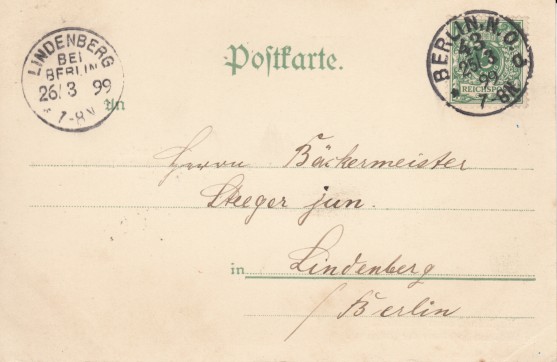 Postkarte.
LINDENBERG
BEI
BERLIN
26/3 99
* 7-8N
BERLIN. N.O.
43
26 3
99
* 7-8N
REICHSPO
An
Herrn Bäckermeister
Steeger jun.
in Lindenberg
/Berlin